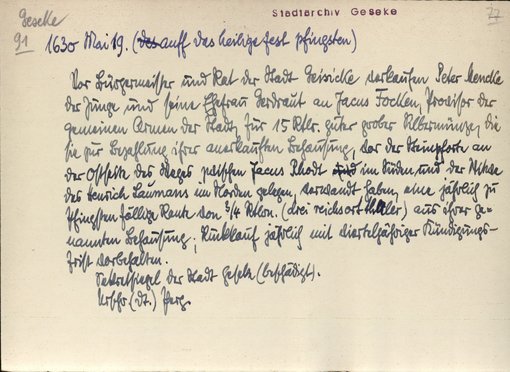 Geseke
Stadtarchiv Geseke
77
91
1630 Mai 19. (des auff das heilige fest pfingsten)
Vor Bürgermeister und Rat der Stadt Geisicke verkaufen Peter Mencke
der Junge und seine Ehefrau Gerdraut an Jacus Focken, Provisor der
gemeinen Armen der Stadt, für 15 Rtlr. guter grober Silbermünze, die
sie zur Bezahlung ihrer anerkauften Behausung, vor der Steinpforte an
der Ostseite des Weges zwischen Jacus Rhodt im Süden und der
des Henrich Laumans im Norden gelegen, verwandt haben, eine jährlich zu
Pfingsten fällige Rente von 3/4 Rtlrn. (drei reichsort thaller) aus ihrer ge-
nannten Behausung; Rücklauf jährlich mit vierteljähriger Kündigungs-
frist vorbehalten.
Sekretsiegel der Stadt Geseke (beschädigt).
Urschr. (dt.) Perg.